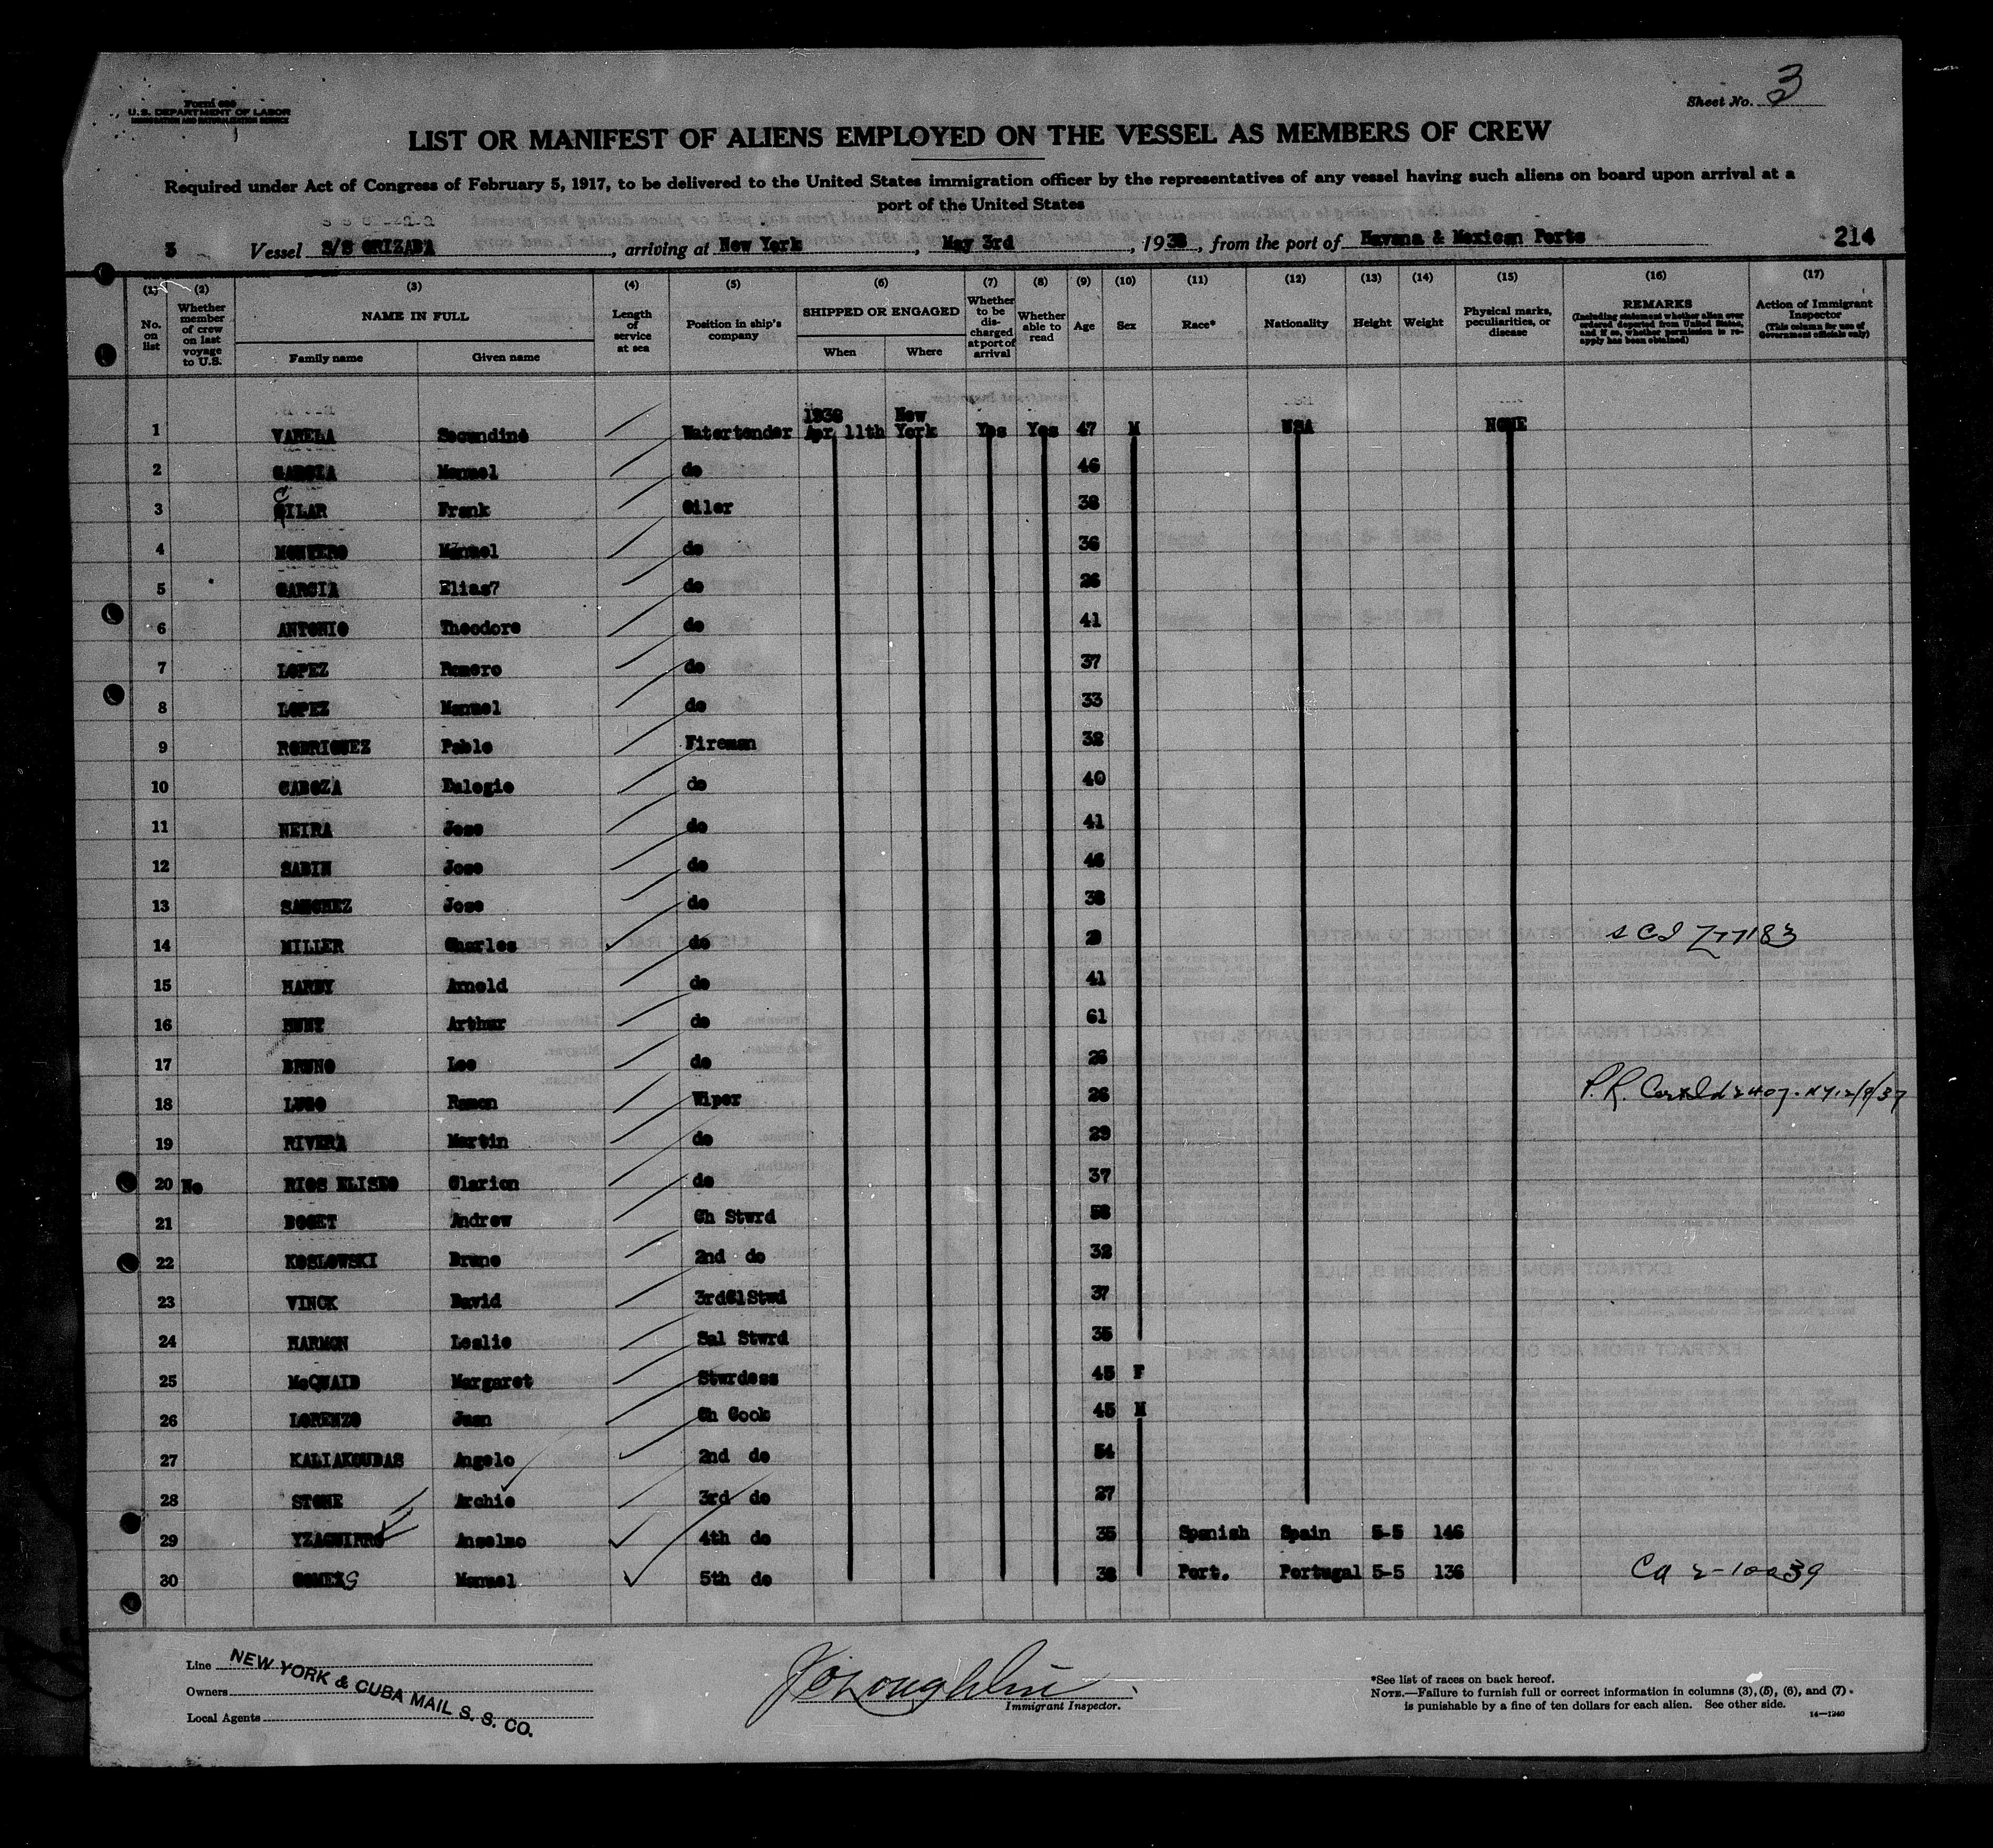 Form 689
U.S. DEPARTMENT OF LABOR
IMMIGRATION AND NATURALIZATION SERVICE
Sheet No. 3
LIST OR MANIFEST OF ALIENS EMPLOYED ON THE VESSEL AS MEMBERS OF CREW
Required under Act of Congress of February 5, 1917, to be delivered to the United States immigration officer by the representatives of any vessel having such aliens on board upon arrival at a
port of the United States
3 Vessel S/S ORIZABA, arriving at New York, May 3rd, 1938, from the port of Havana & Mexican Ports 214
(1) No. on list
(2) Whether member of crew on last voyage to U.S.
(3) NAME IN FULL Family name Given name
(4) Length of service at sea
(5) Position in ship's company
(6) SHIPPED OR ENGAGED When Where
(7) Whether to be discharged at port of arrival
(8) Whether able to read
(9) Age
(10) Sex
(11) Race*
(12) Nationality
(13) Height
(14) Weight
(15) Physical marks, peculiarities, or disease
(16) REMARKS (Including statement whether alien ever ordered deported from United States, and if so, whether permission to reapply has been obtained)
(17) Action of Immigrant Inspector (This column for use of Government officials only)
1938 New
1 VARELA Secundino Watertender Apr 11th York Yes Yes 47 M USA NONE
2 GARCIA Manuel do 46
3 CILAR Frank Oiler 38
4 MONTERO Manuel do 36
5 GARCIA Elias7 do 26
6 ANTONIO Theodore do 41
7 LOPEZ Romero do 37
8 LOPEZ Manuel do 33
9 RODRIGUEZ Pablo Fireman 32
10 CABOZA Eulogio do 40
11 NEIRA Jose do 41
12 SABIN Jose do 46
13 SANCHEZ Jose do 38
14 MILLER Charles do SCI Z77183
15 HARDY Arnold do 41
16 HUNT Arthur do 61
17 BRUNO Leo do 26
18 LUGO Ramon Wiper 26 P.R.
19 RIVERA Martin do 29
20 No RIOS ELISEO Clarion do 37
21 BOGET Andrew Ch Stwrd 58
22 KOSLOWSKI Bruno 2nd do 32
23 VINCK David 3rdClStwd 37
24 HARMON Leslie Sal Stwrd 35
25 McQUAID Margaret Stwrdess 45 F
26 LORENZO Juan Ch Cook 45 M
27 KALIAKOUDAS Angelo 2nd do 54
28 STONE Archie 3rd do 27
29 YZAGUIRRE Anselmo 4th do 35 Spanish Spain 5-5 146
30 GOMES Manuel 5th do 38 Port. Portugal 5-5 136
Line
Owners
Local Agents
NEW YORK & CUBA MAIL S. S. CO.
Immigrant Inspector.
*See list of races on back hereof.
NOTE.—Failure to furnish full or correct information in columns (3), (5), (6), and (7)
is punishable by a fine of ten dollars for each alien. See other side.
14—1240